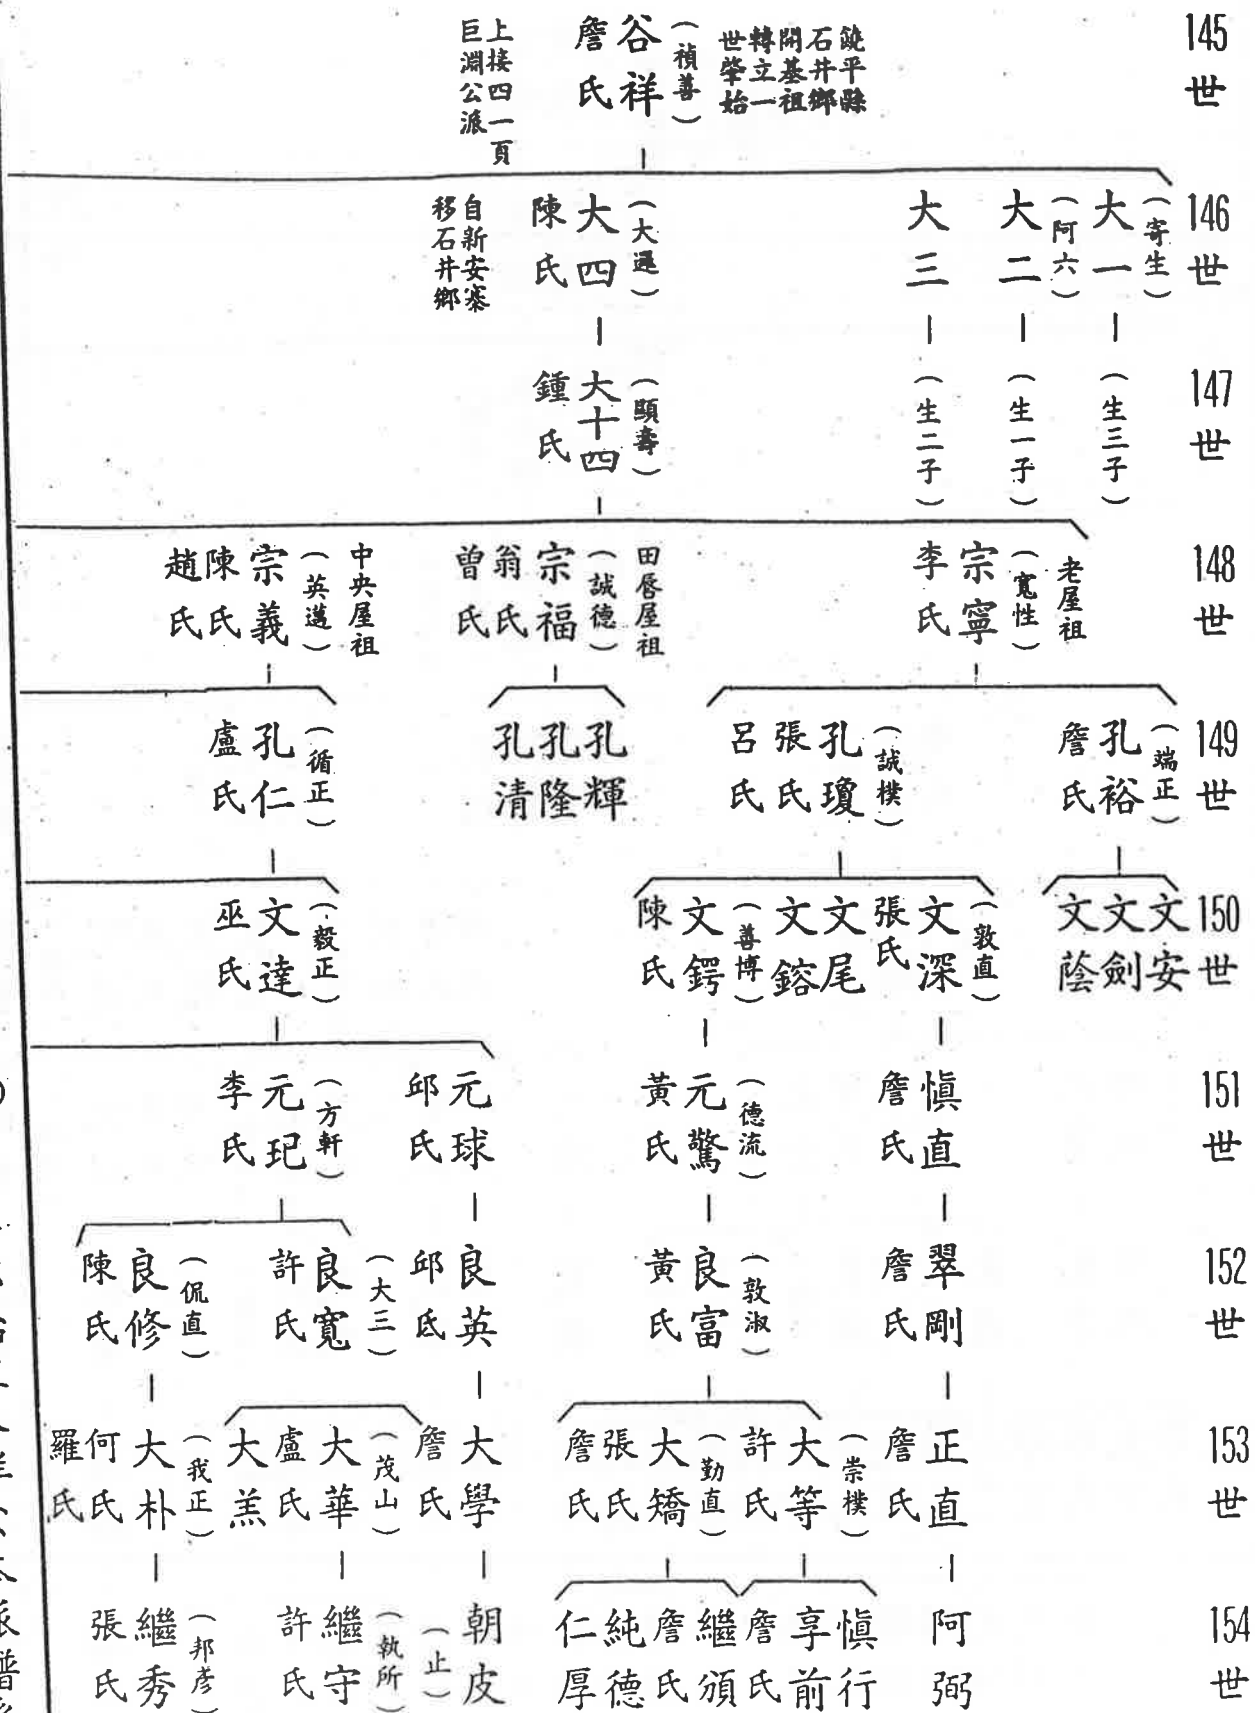 145世
饒平縣
石井鄉
開基祖
轉立一
世肇始
(禎善)
谷祥
詹氏
上接四一頁
巨淵公派
146世
(寄生)
大一
(阿六)
大二
大三
大四
陳氏
自新安寨
移石井鄉
147世
(生三子)
(生一子)
(生二子)
(顯壽)
大十四
鍾氏
148世
老屋祖
(寬性)
宗寧
李氏
田唇屋祖
(誠德)
宗福
翁氏
曾氏
中央屋祖
(英邁)
宗義
陳氏
趙氏
149世
(端正)
孔裕
詹氏
(誠樸)
孔瓊
張氏
呂氏
孔輝
孔隆
孔清
(循正)
孔仁
盧氏
150世
文安
文劍
文蔭
(敦直)
文深
張氏
文尾
文鎔
(善博)
文鍔
陳氏
(毅正)
文達
巫氏
151世
愼直
詹氏
(德流)
元驚
黃氏
元球
邱氏
(方軒)
元玘
李氏
152世
翠剛
詹氏
(敦淑)
良富
黃氏
良英
邱氏
(大三)
良寬
許氏
(侃直)
良修
陳氏
153世
正直
詹氏
(崇樸)
大等
許氏
(勤直)
大矯
張氏
詹氏
大學
詹氏
(茂山)
大華
盧氏
大羔
(我正)
大朴
何氏
羅氏
154世
阿弼
愼行
享前
詹氏
繼頒
詹氏
純德
仁厚
朝皮
(止)
(執所)
繼守
許氏
(邦彥)
繼秀
張氏